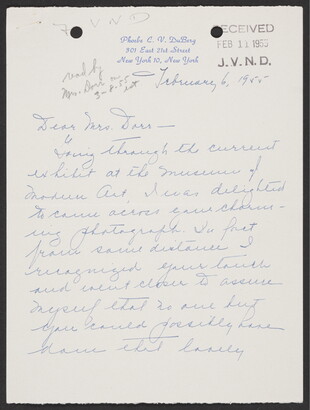 J V N D
RECEIVED
FEB 11 1955
J. V. N. D.
Phoebe C. V. DuBerg
301 East 21st Street
New York 10, New York
read by
Mrs. Dorr on
3-8-55
February 6, 1955
Dear Mrs. Dorr—
Going through the current
exhibit at the Museum of
Modern Art, I was delighted
to come across your charm-
ing photograph. In fact
from some distance I
recognized your touch
and went closer to assure
myself that no one but
you could possibly have
done that lovely